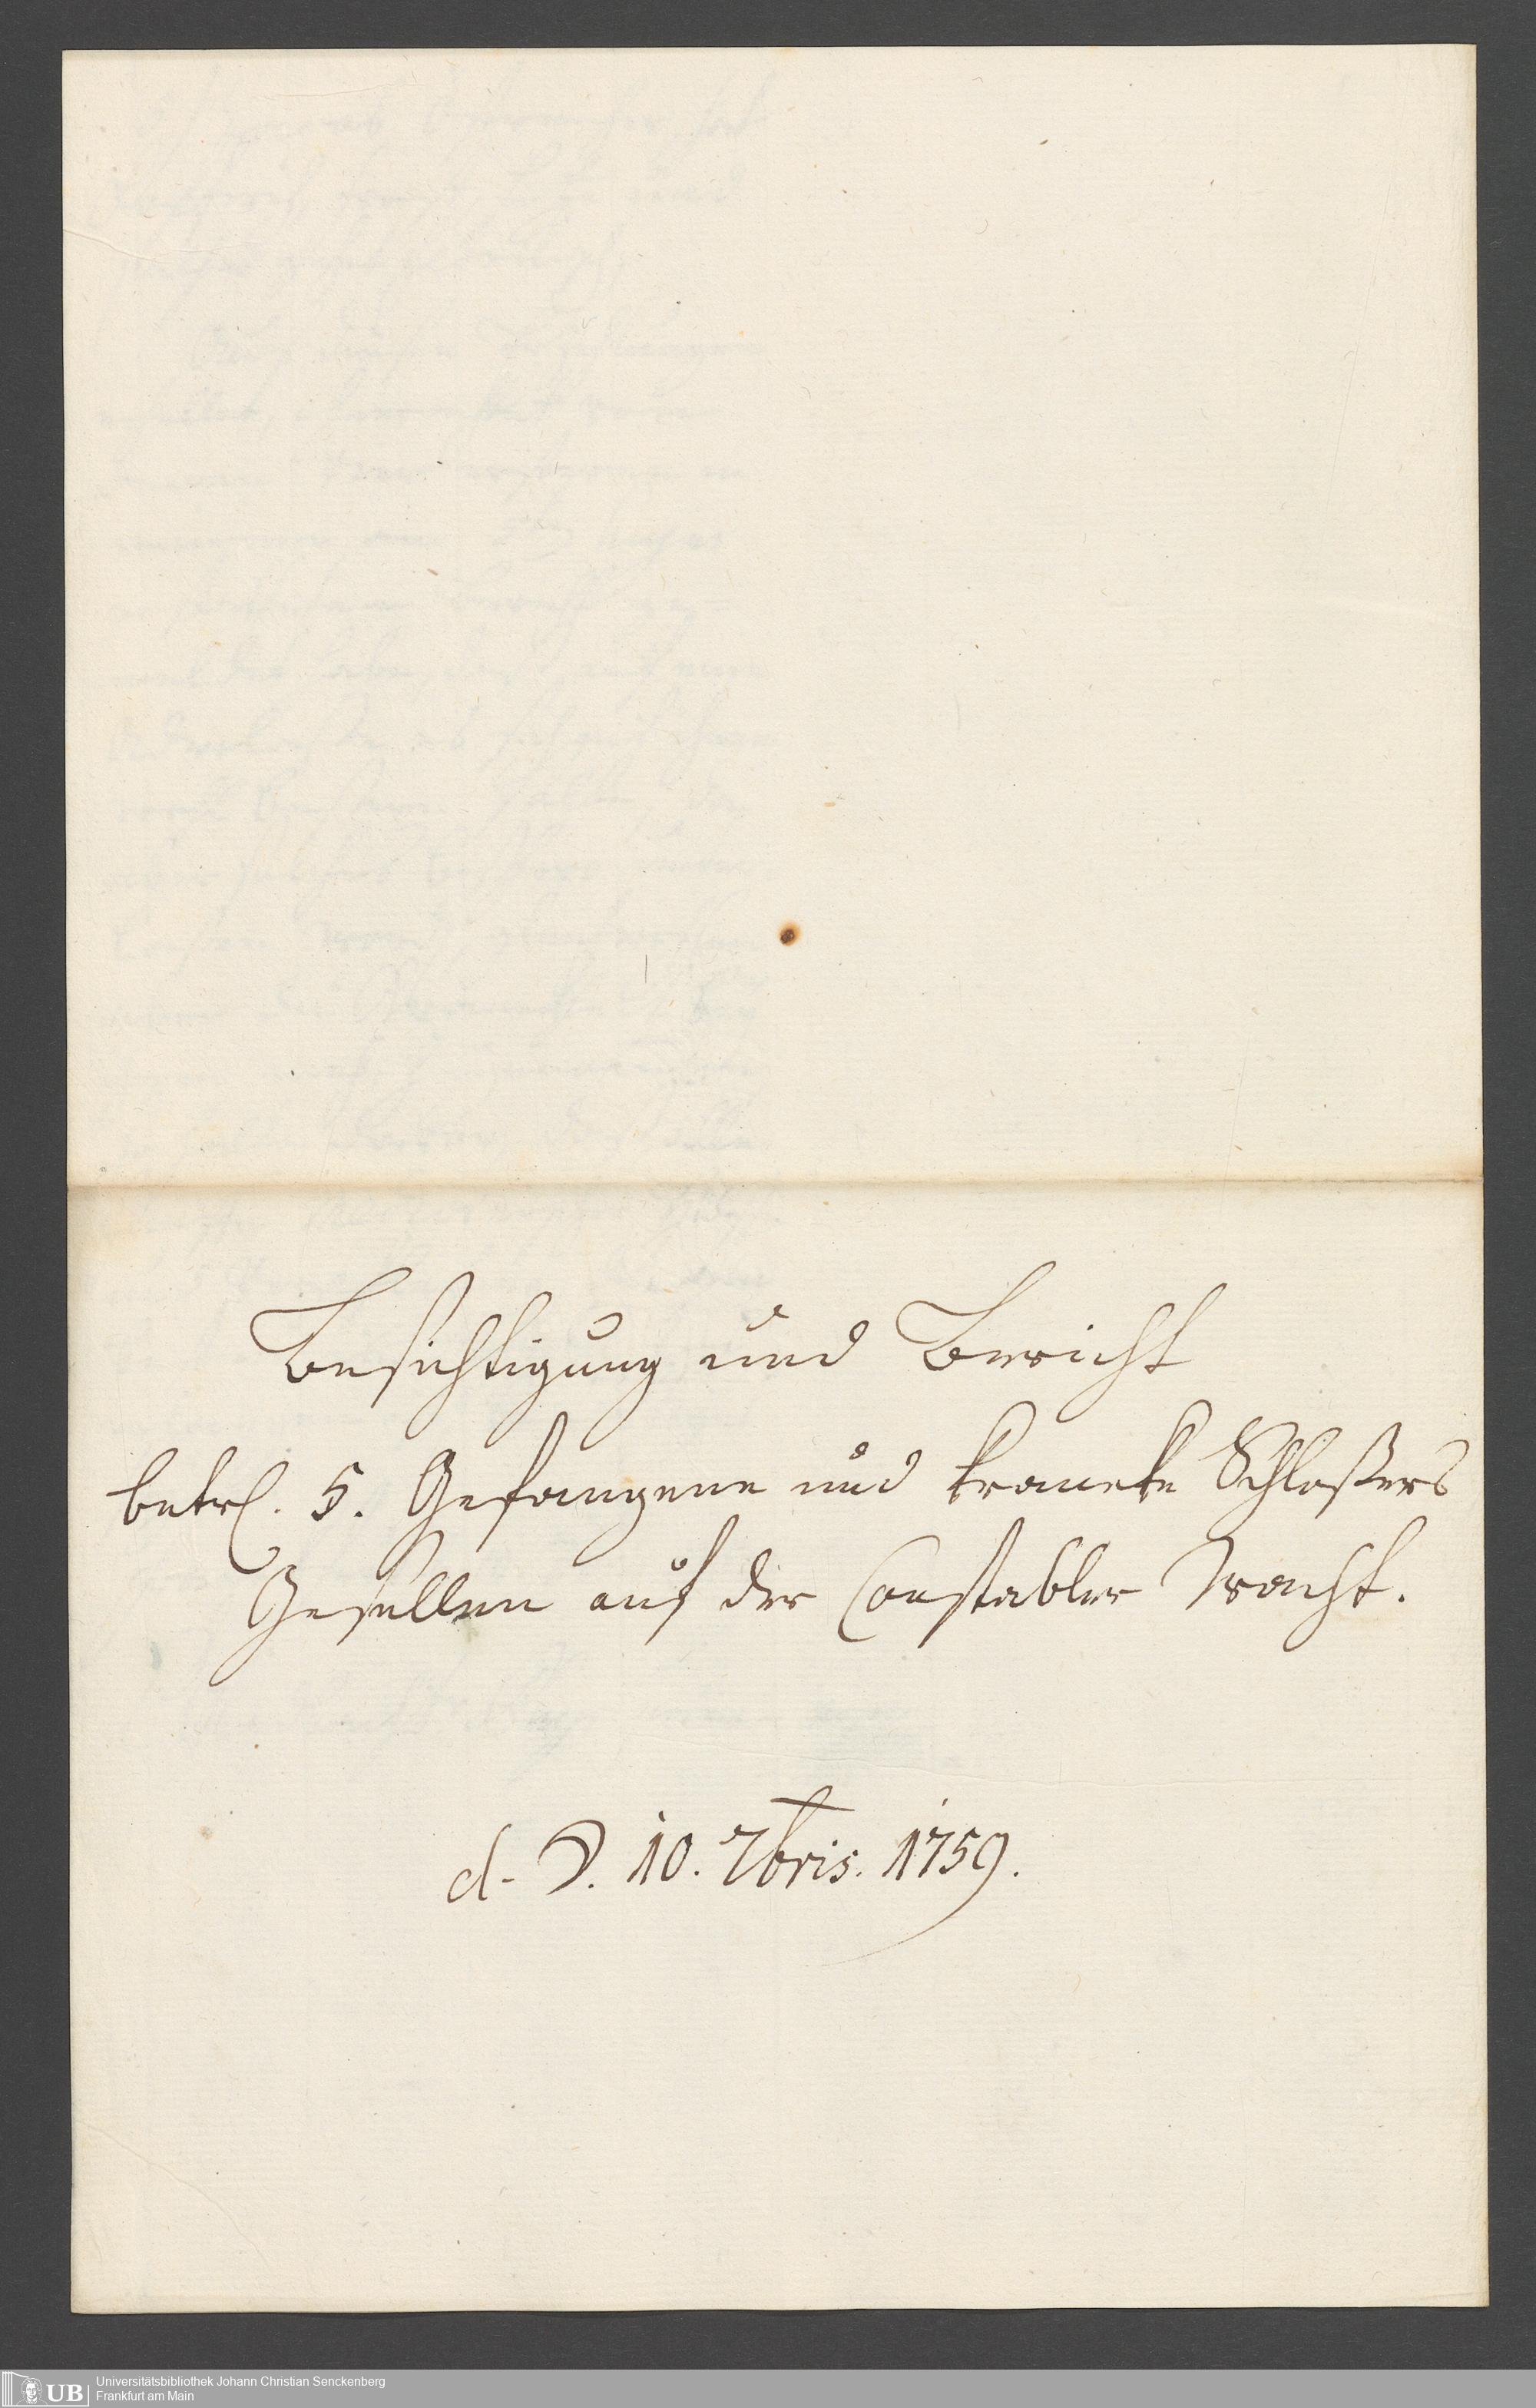 Besichtigung und Bericht
betrl. 5. Gefangene und krancke Schloßers
Gesellen auf der Constabler Wacht.
d. ☽. 10. 7bris. 1759.
UB
Universitätsbibliothek Johann Christian Senckenberg
Frankfurt am Main